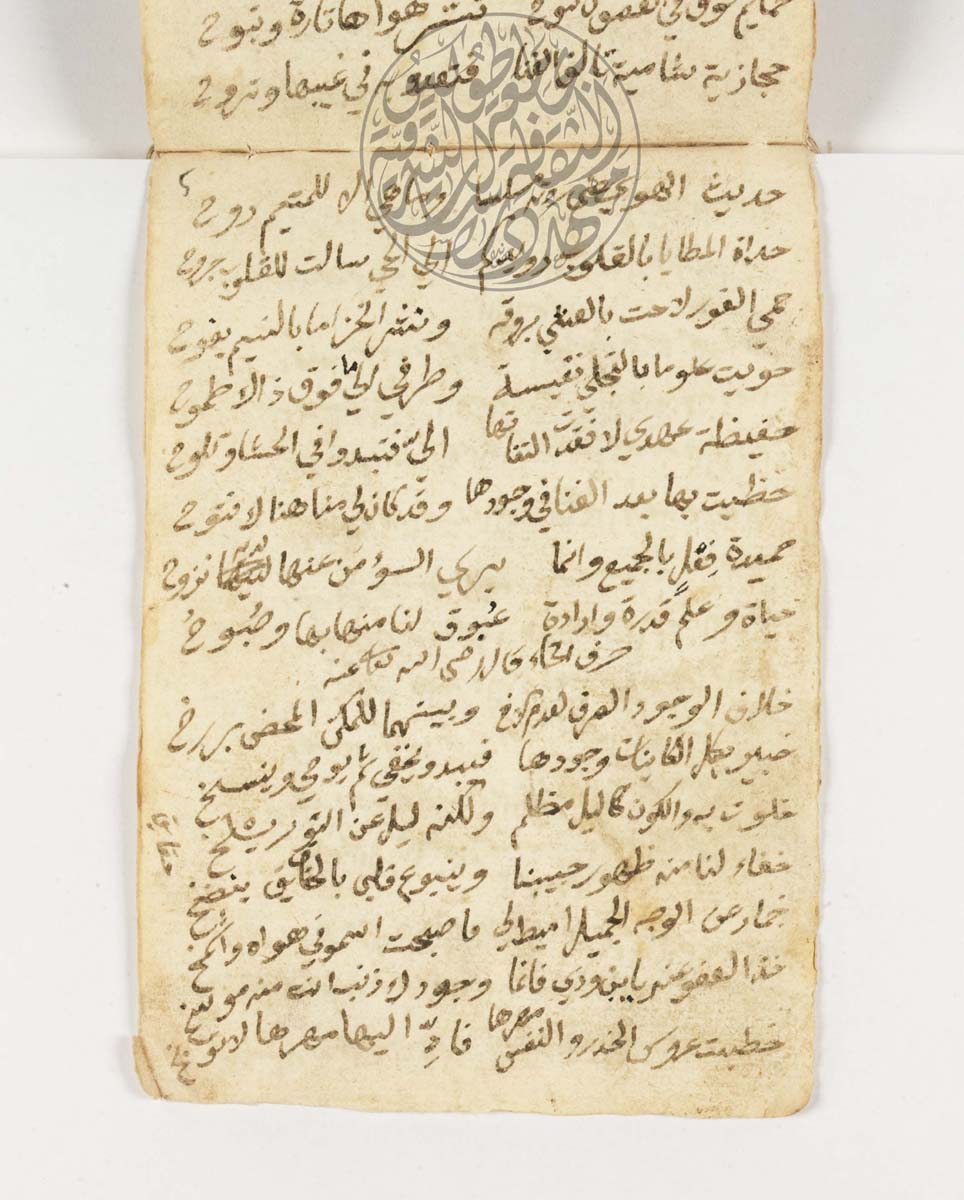 حمايم شوق في غصون تنوح
حجازية شامية تالف الغنا فتغدو في غيبها وتروح
حديث الهوى وما هي الا للمتيم روح
حداة المطايا بالقلوب رويدكم الى الحي سالت للقلوب جروح
حمى الغور لاحت بالعشي بروقه ونشر الخزاما بالنسيم يفوح
حويت علوما بالتجلي نفيسة وطرفي الى ما فوق ذالا طموح
حفيظة عهدي لا فقدت التفاتها الي فتبدوا في الحشا وتلوح
حظيت بها بعد الفنا في وجودها وقد كان لي منا هنا لا فتوح
حميدة فعل بالجميع وانما يرى السوء من عنها لديه نزوح
حياة وعلم قدرة وارادة غبوق لنا منها بها وصبوح
حرف الخاء قال رضي الله تعالى عنه
خلاف الوجود الصرف لعدم وبينهما للمكن المحض برزخ
خبير بكل الكاينات وجودها فيبدو ويخفى ثم يوحي وينسخ
خلوت به والكون كالليل مظلم ولكنه ليل عن النور يسلخ
خفاء لنا منه ظهور حبيبنا وينبوع قلبي بالحقايق ينضخ
خمار عن الوجه الجميل اميط لي فاصبحت اسمو في هواه واشمخ
خذ العفو عنه يا ابن ودي فانما وجودك ذنب انت منه موبخ
خطبت عروس الخدر والنفس مهرها فادّ اليها مهرها لا توبخ